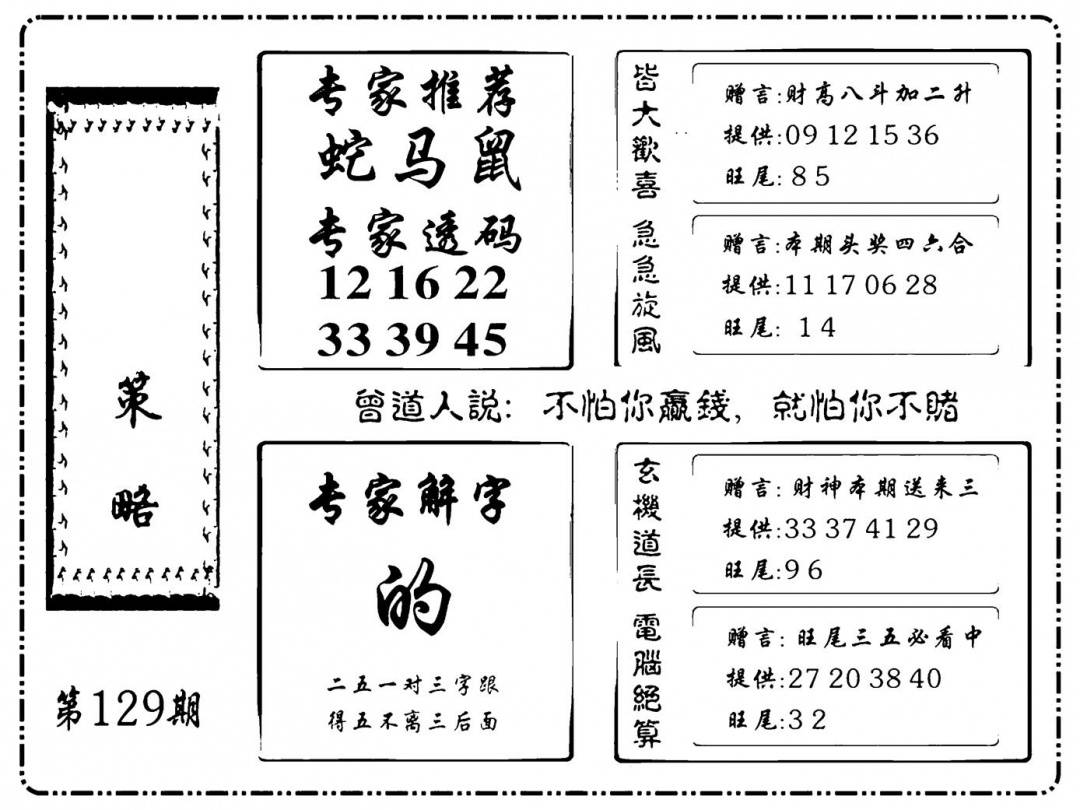 策略
第129期
专家推荐
蛇马鼠
专家透码
12 16 22
33 39 45
皆大歡喜
赠言:财高八斗加二升
提供:09 12 15 36
旺尾:85
急急旋風
赠言:本期头奖四六合
提供:11 17 06 28
旺尾: 14
曾道人説: 不怕你贏錢, 就怕你不賭
专家解字
的
二五一对三字跟
得五不离三后面
玄機道長
赠言: 财神本期送来三
提供:33 37 41 29
旺尾:96
電腦絕算
赠言: 旺尾三五必看中
提供:27 20 38 40
旺尾:32